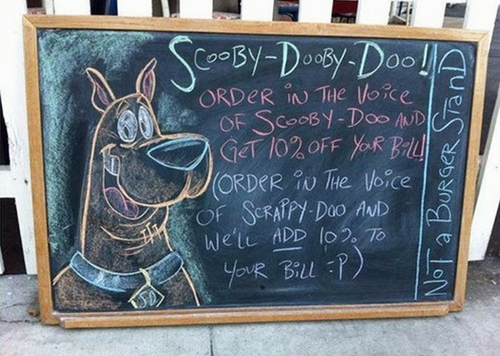 Scooby-Dooby-Doo!
ORDER iN THE VOiCE
OF SCOOBY-DOO AND
GET 10% OFF YOUR BiLL!
(ORDER iN THE VOiCE
OF SCRAPPY-DOO AND
WE'LL ADD 10% TO
YOUR BiLL =P)
NOT a BURGER STAND
SD